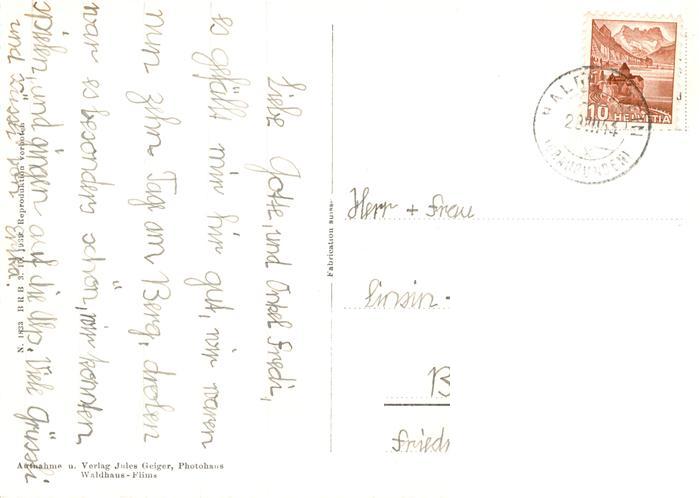 Liebe Gotte, und Onkel Fredi,
es gefällt mir hir gut, wir waren
nun zehn Tag am Berg, droben
war es besonders schön, wir konnten
spielen, und gingen auf die Alp. Viele Grüsse
und Küsse von Erika.
N. 1833 BRB 3. 10. 1939. Reproduktion verboten
Aufnahme u. Verlag Jules Geiger, Photohaus
Waldhaus-Flims
Fabrication suisse
10 HELVETIA
(GRAUBÜNDEN)
Herr + Frau
Friedr